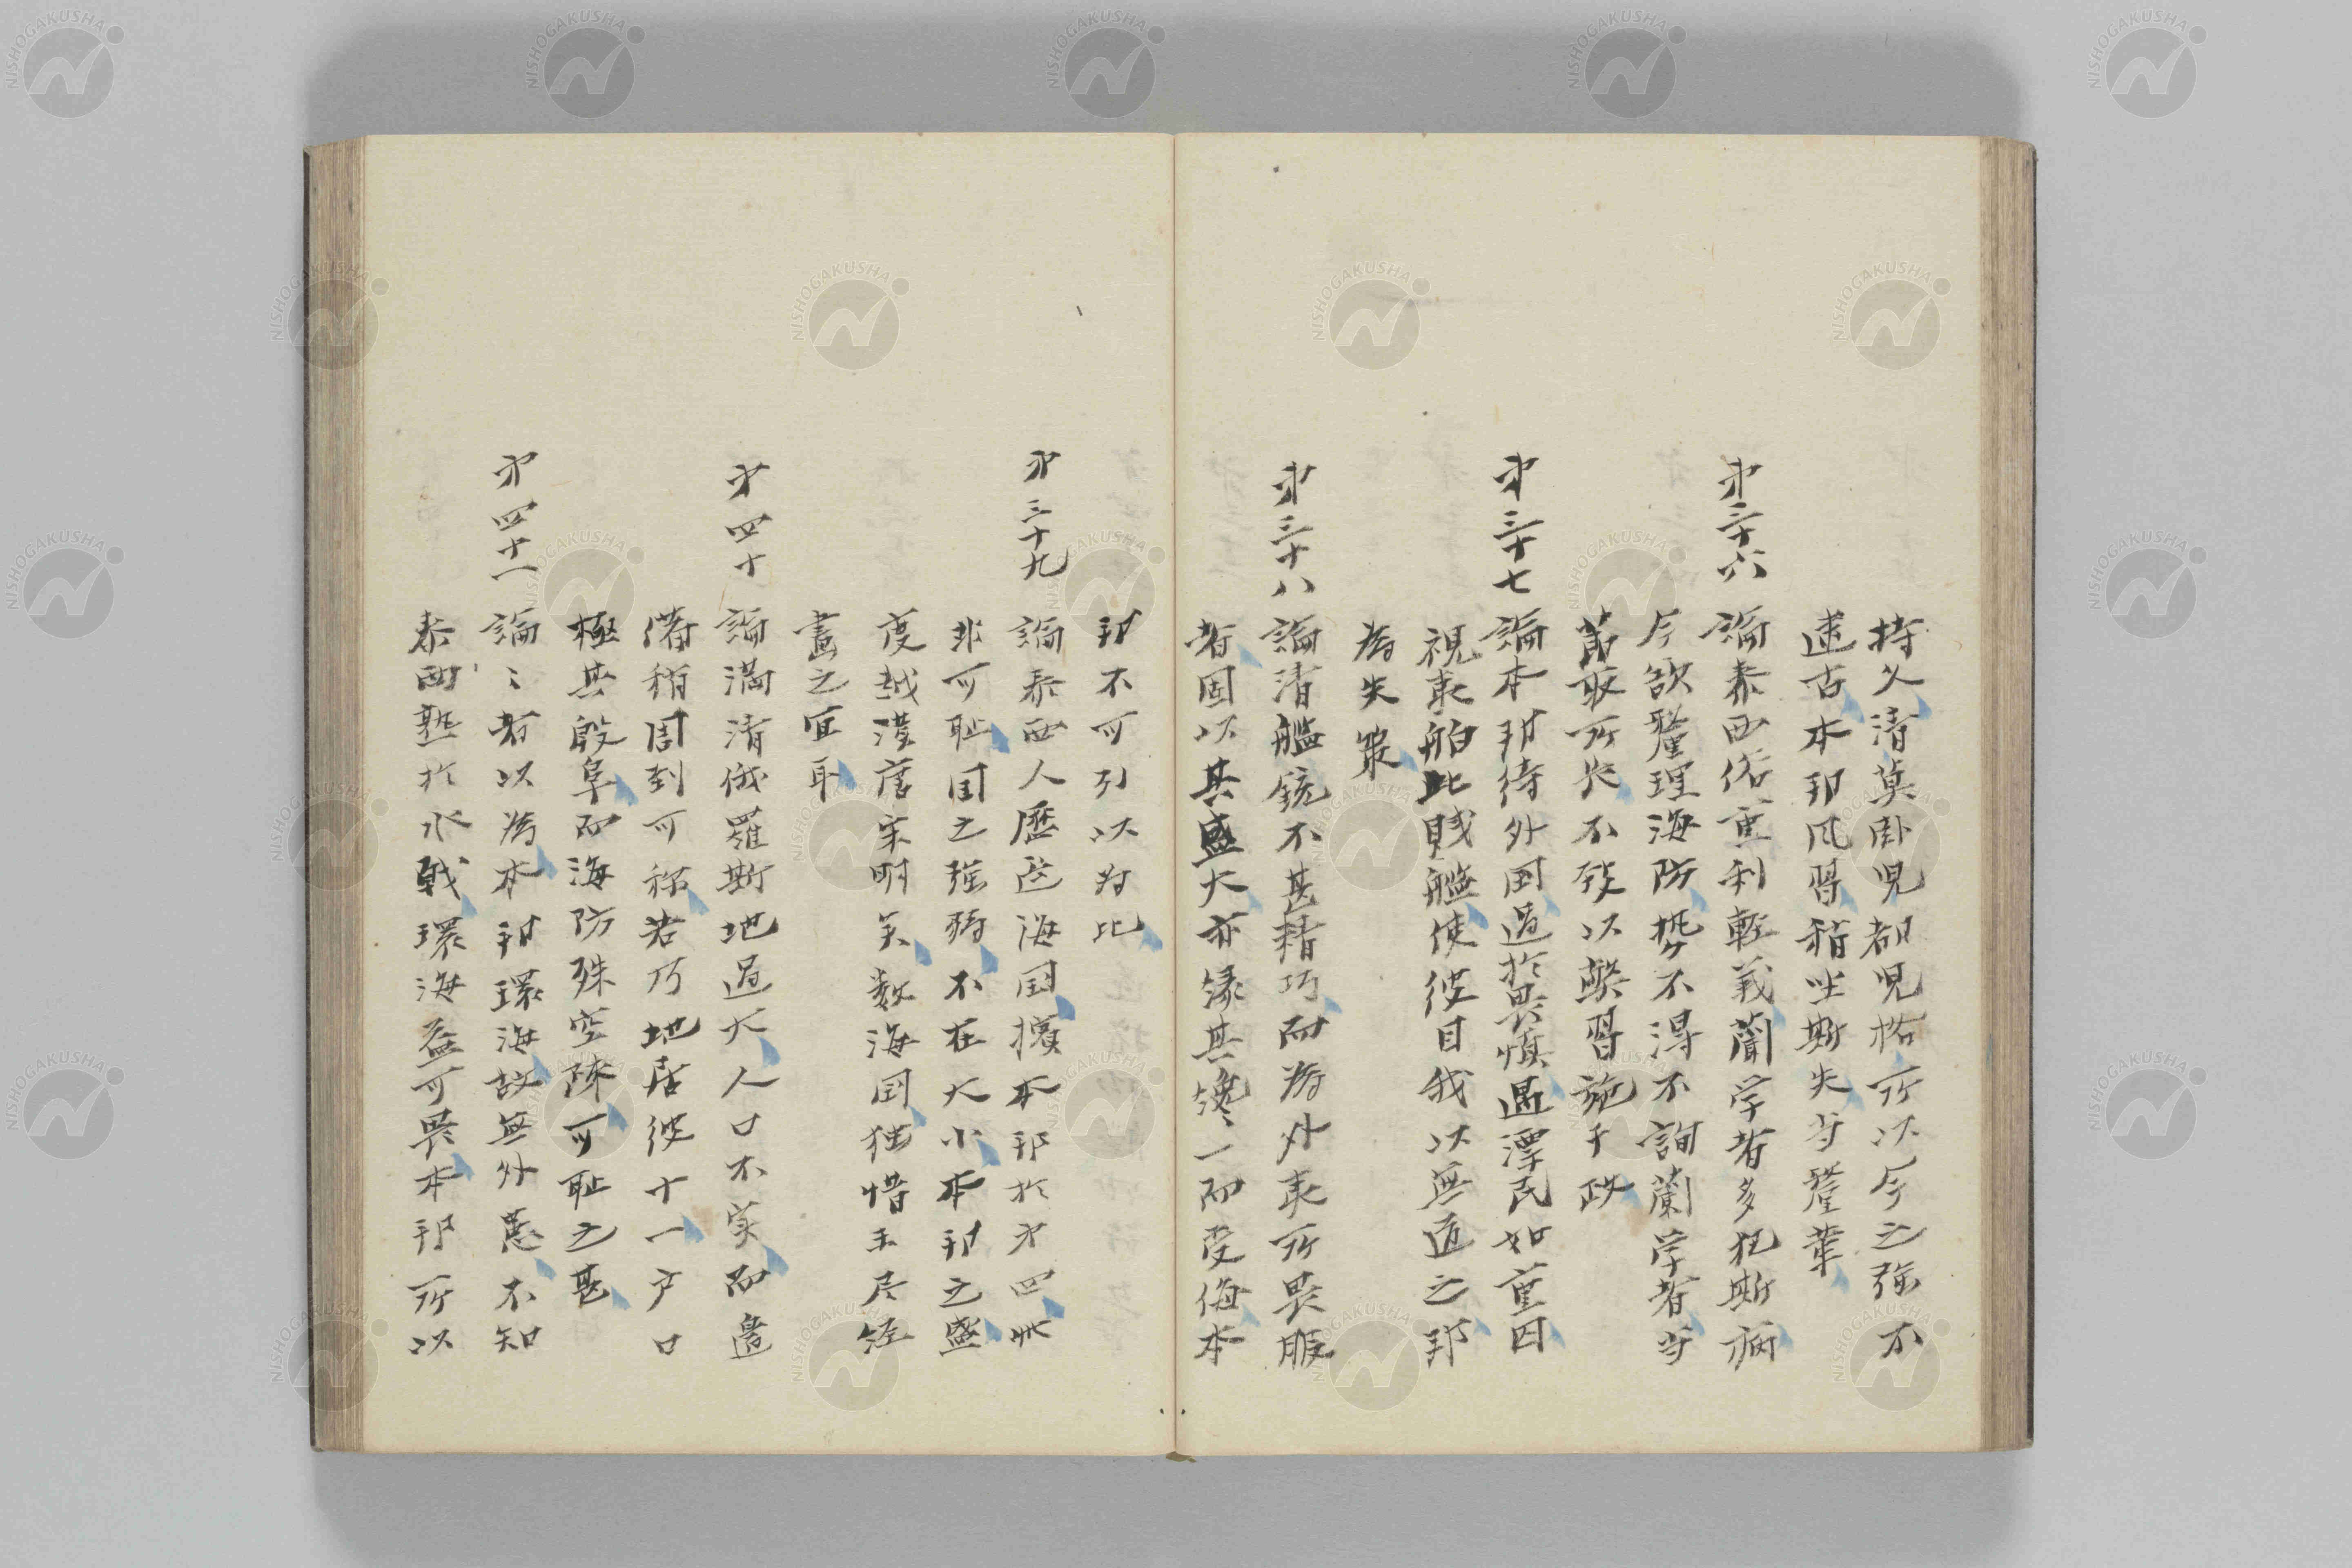 持久清莫卧児都児格所以今之強不
逮古本邦風習稍坐斯失当釐革
第三十六 論泰西俗重利軽義蘭学者多犯斯病
今欲釐理海防勢不得不詢蘭学者当
節取所長不殺以弊習施于政
第三十七 論本邦待外国過於畏慎遇漂民如重囚
視夷舶比賊艦使彼目我以無道之邦
為失策
第三十八 論清艦銃不甚精巧而為外夷所畏服
者固以其盛大亦縁其纔一而受侮本
邦不可引以为比
第三十九 論泰西人歴邑海国擯本邦於第四此
非可耻国之強弱不在大小本邦之盛
度越漢唐宋明矣数海国独惜未尽経
画之宜耳
第四十 論満清俄羅斯地過大人口不実而邊
備稍周到可称若乃地居彼十一户口
極其殷阜而海防殊空疎可耻之甚
第四十一 論〻者以為本邦環海故無外患不知
泰西熟於水戦環海益可畏本邦所以
NISHOGAKUSHA